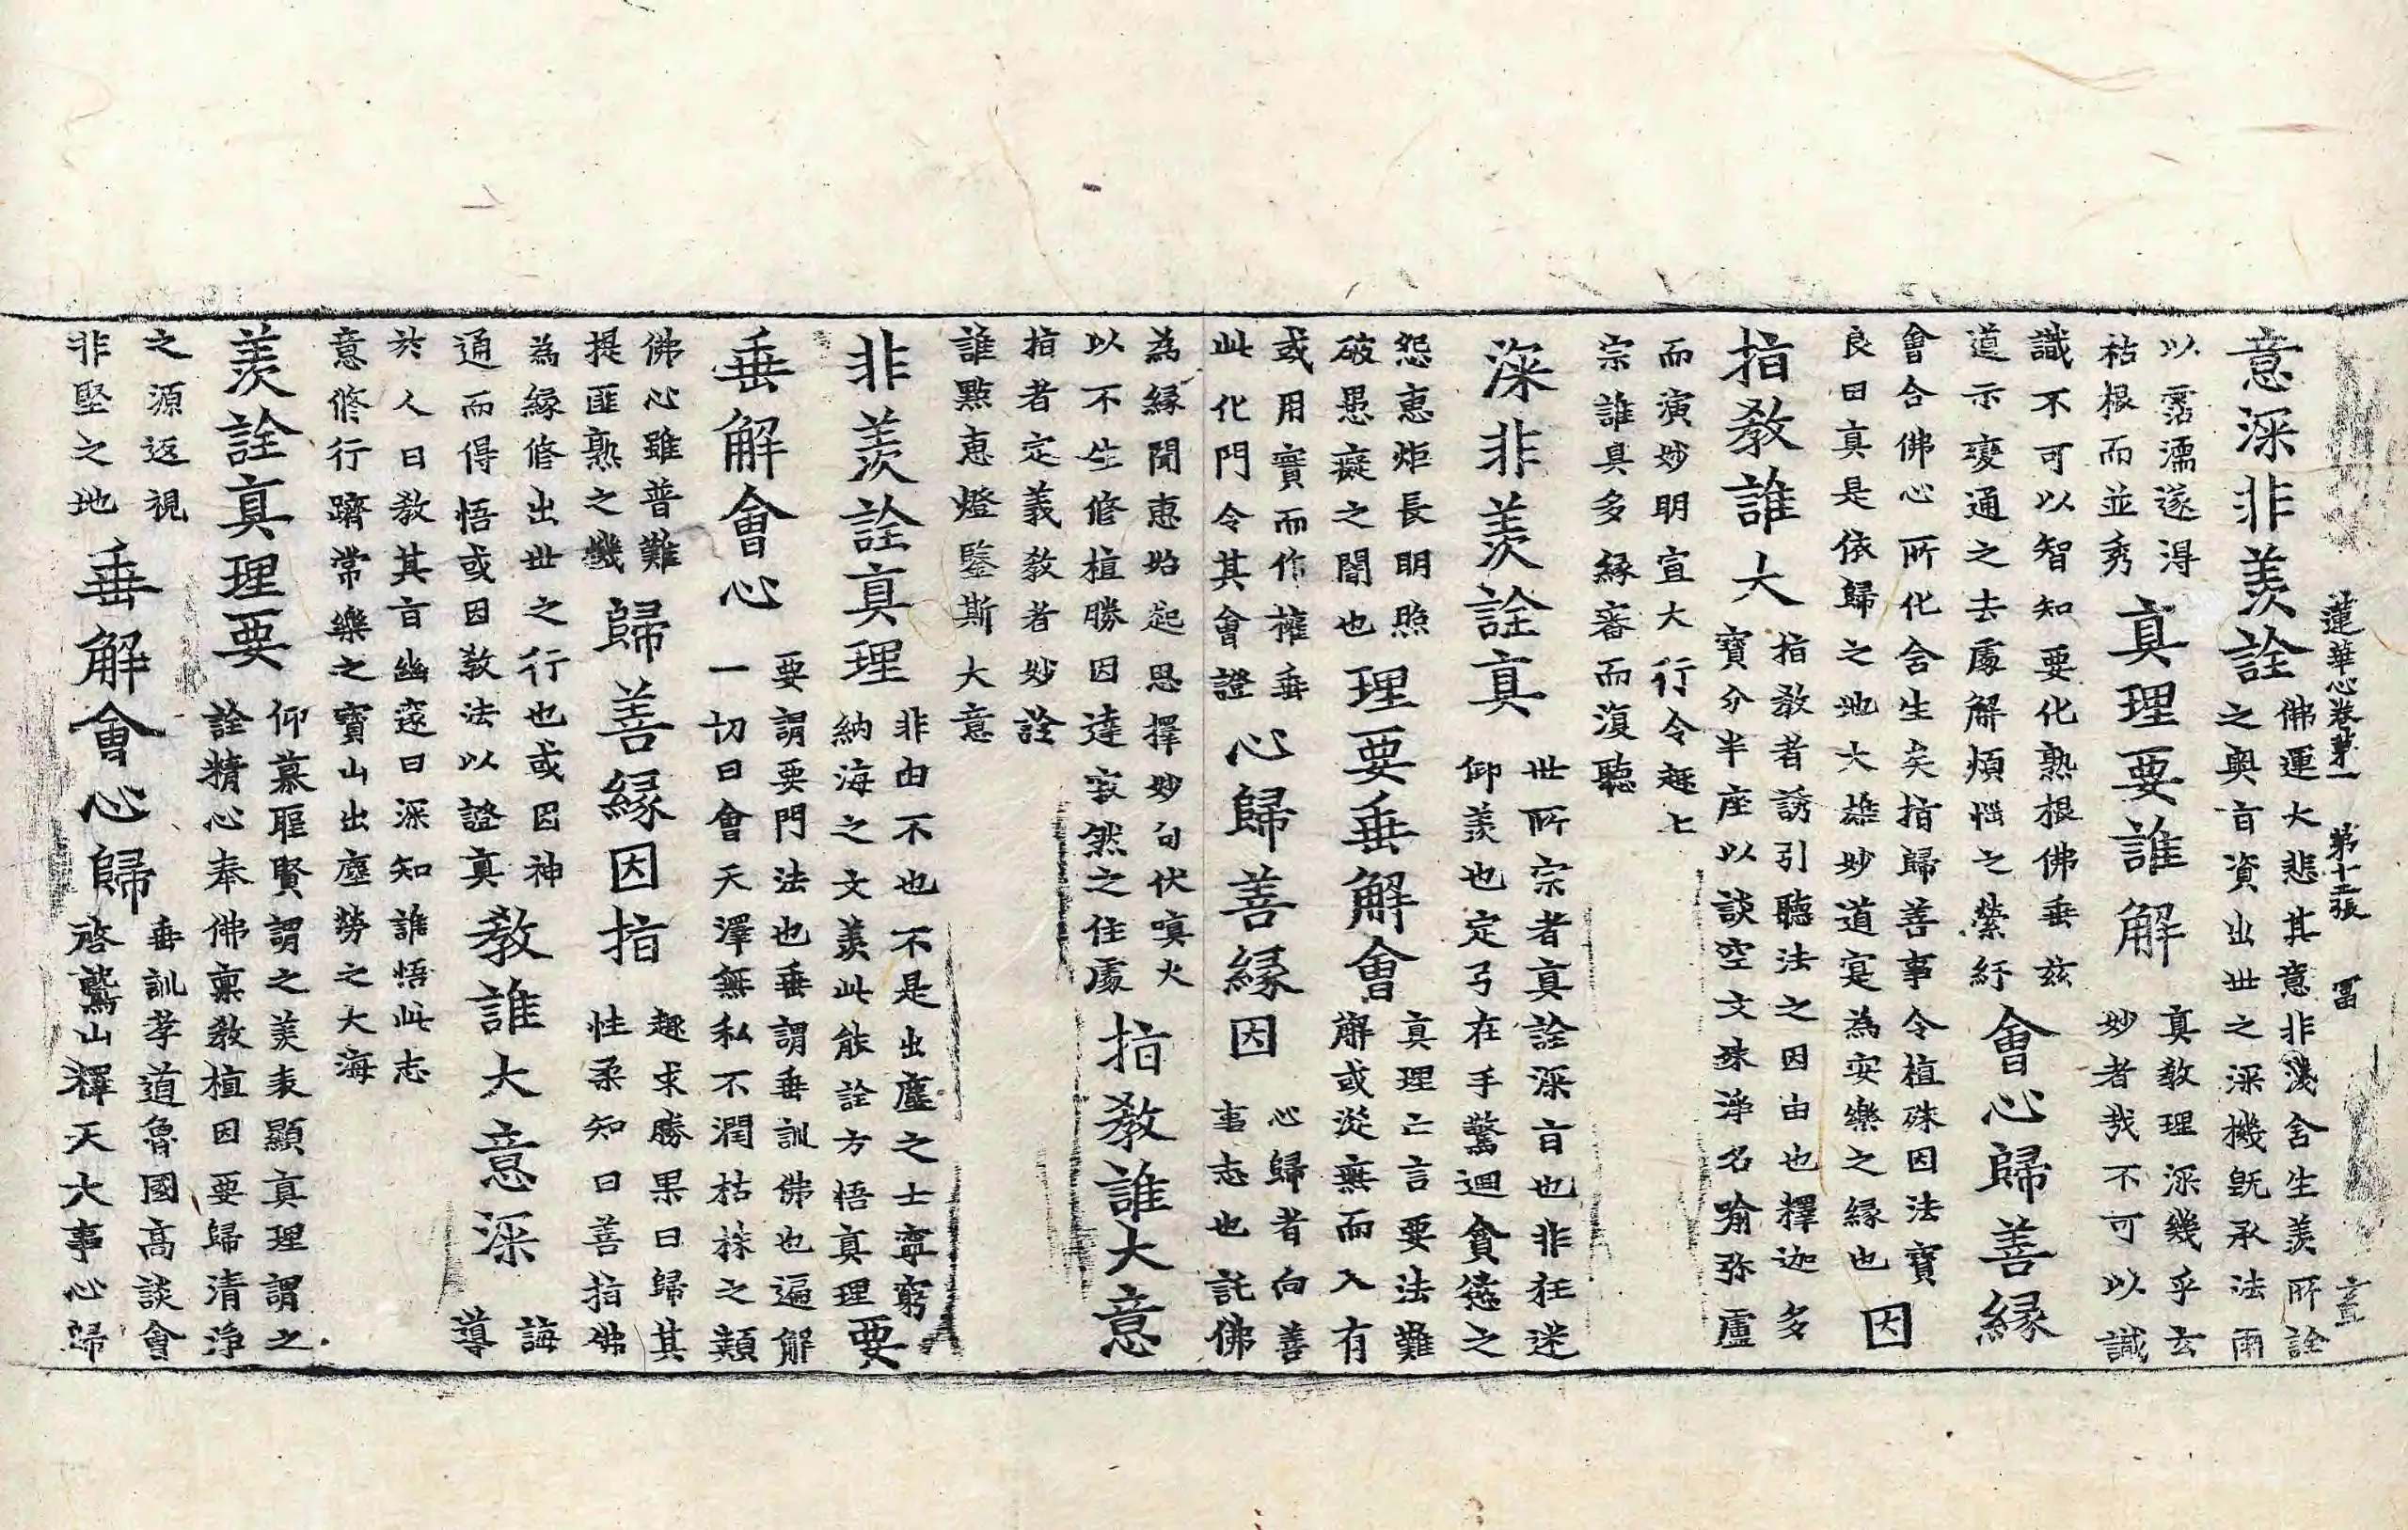 蓮華心卷第一　第十二張　冨
意深非羨詮
佛運大悲其意非淺含生羨所詮
之奧旨資出世之深機旣承法雨
以霑濡遂得
枯根而並秀
真理要誰解
真教理深幾乎玄
妙者哉不可以識
識不可以智知要化熟根佛垂兹
道示變通之去處解煩惱之縈紆
會心歸善緣
會合佛心所化含生矣指歸善事令植殊因法寶
良田真是依歸之地大雄妙道寔為安樂之緣也
因
指教誰大
指教者誘引聽法之因由也釋迦多
寶分半座以談空文殊淨名喻弥盧
而演妙明宣大行令趣七
宗誰具多緣審而復聽
深非羨詮真
世所宗者真詮深旨也非狂迷
仰羨也定弓在手驚迴貪慾之
怨惠炬長明照
破愚癡之闇也
理要垂解會
真理亡言要法難
解或從無而入有
或用實而作權垂
此化門令其會證
心歸善緣因
心歸者向善
事志也託佛
為緣聞惠始起思擇妙句伏嗔火
以不生修植勝因達寂然之住處
指教誰大意
指者定義教者妙詮
誰點惠燈鑒斯大意
非羨詮真理
非由不也不是出塵之士寧窮
納海之文羨此能詮方悟真理
要
垂解會心
要謂要門法也垂謂垂訓佛也遍解
一切曰會天澤無私不潤枯株之類
佛心雖普難
提匪熟之機
歸善緣因指
趣求勝果曰歸其
性柔知曰善指佛
為緣修出世之行也或因神
通而得悟或因教法以證真
教誰大意深
誨
導
於人曰教其旨幽邃曰深知誰悟此志
意修行躋常樂之寶山出塵勞之大海
羨詮真理要
仰慕聖賢謂之羨表顯真理謂之
詮精心奉佛稟教植因要歸清淨
之源返視
非堅之地
垂解會心歸
垂訓孝道魯國高談會
啓鷲山釋天大事心歸